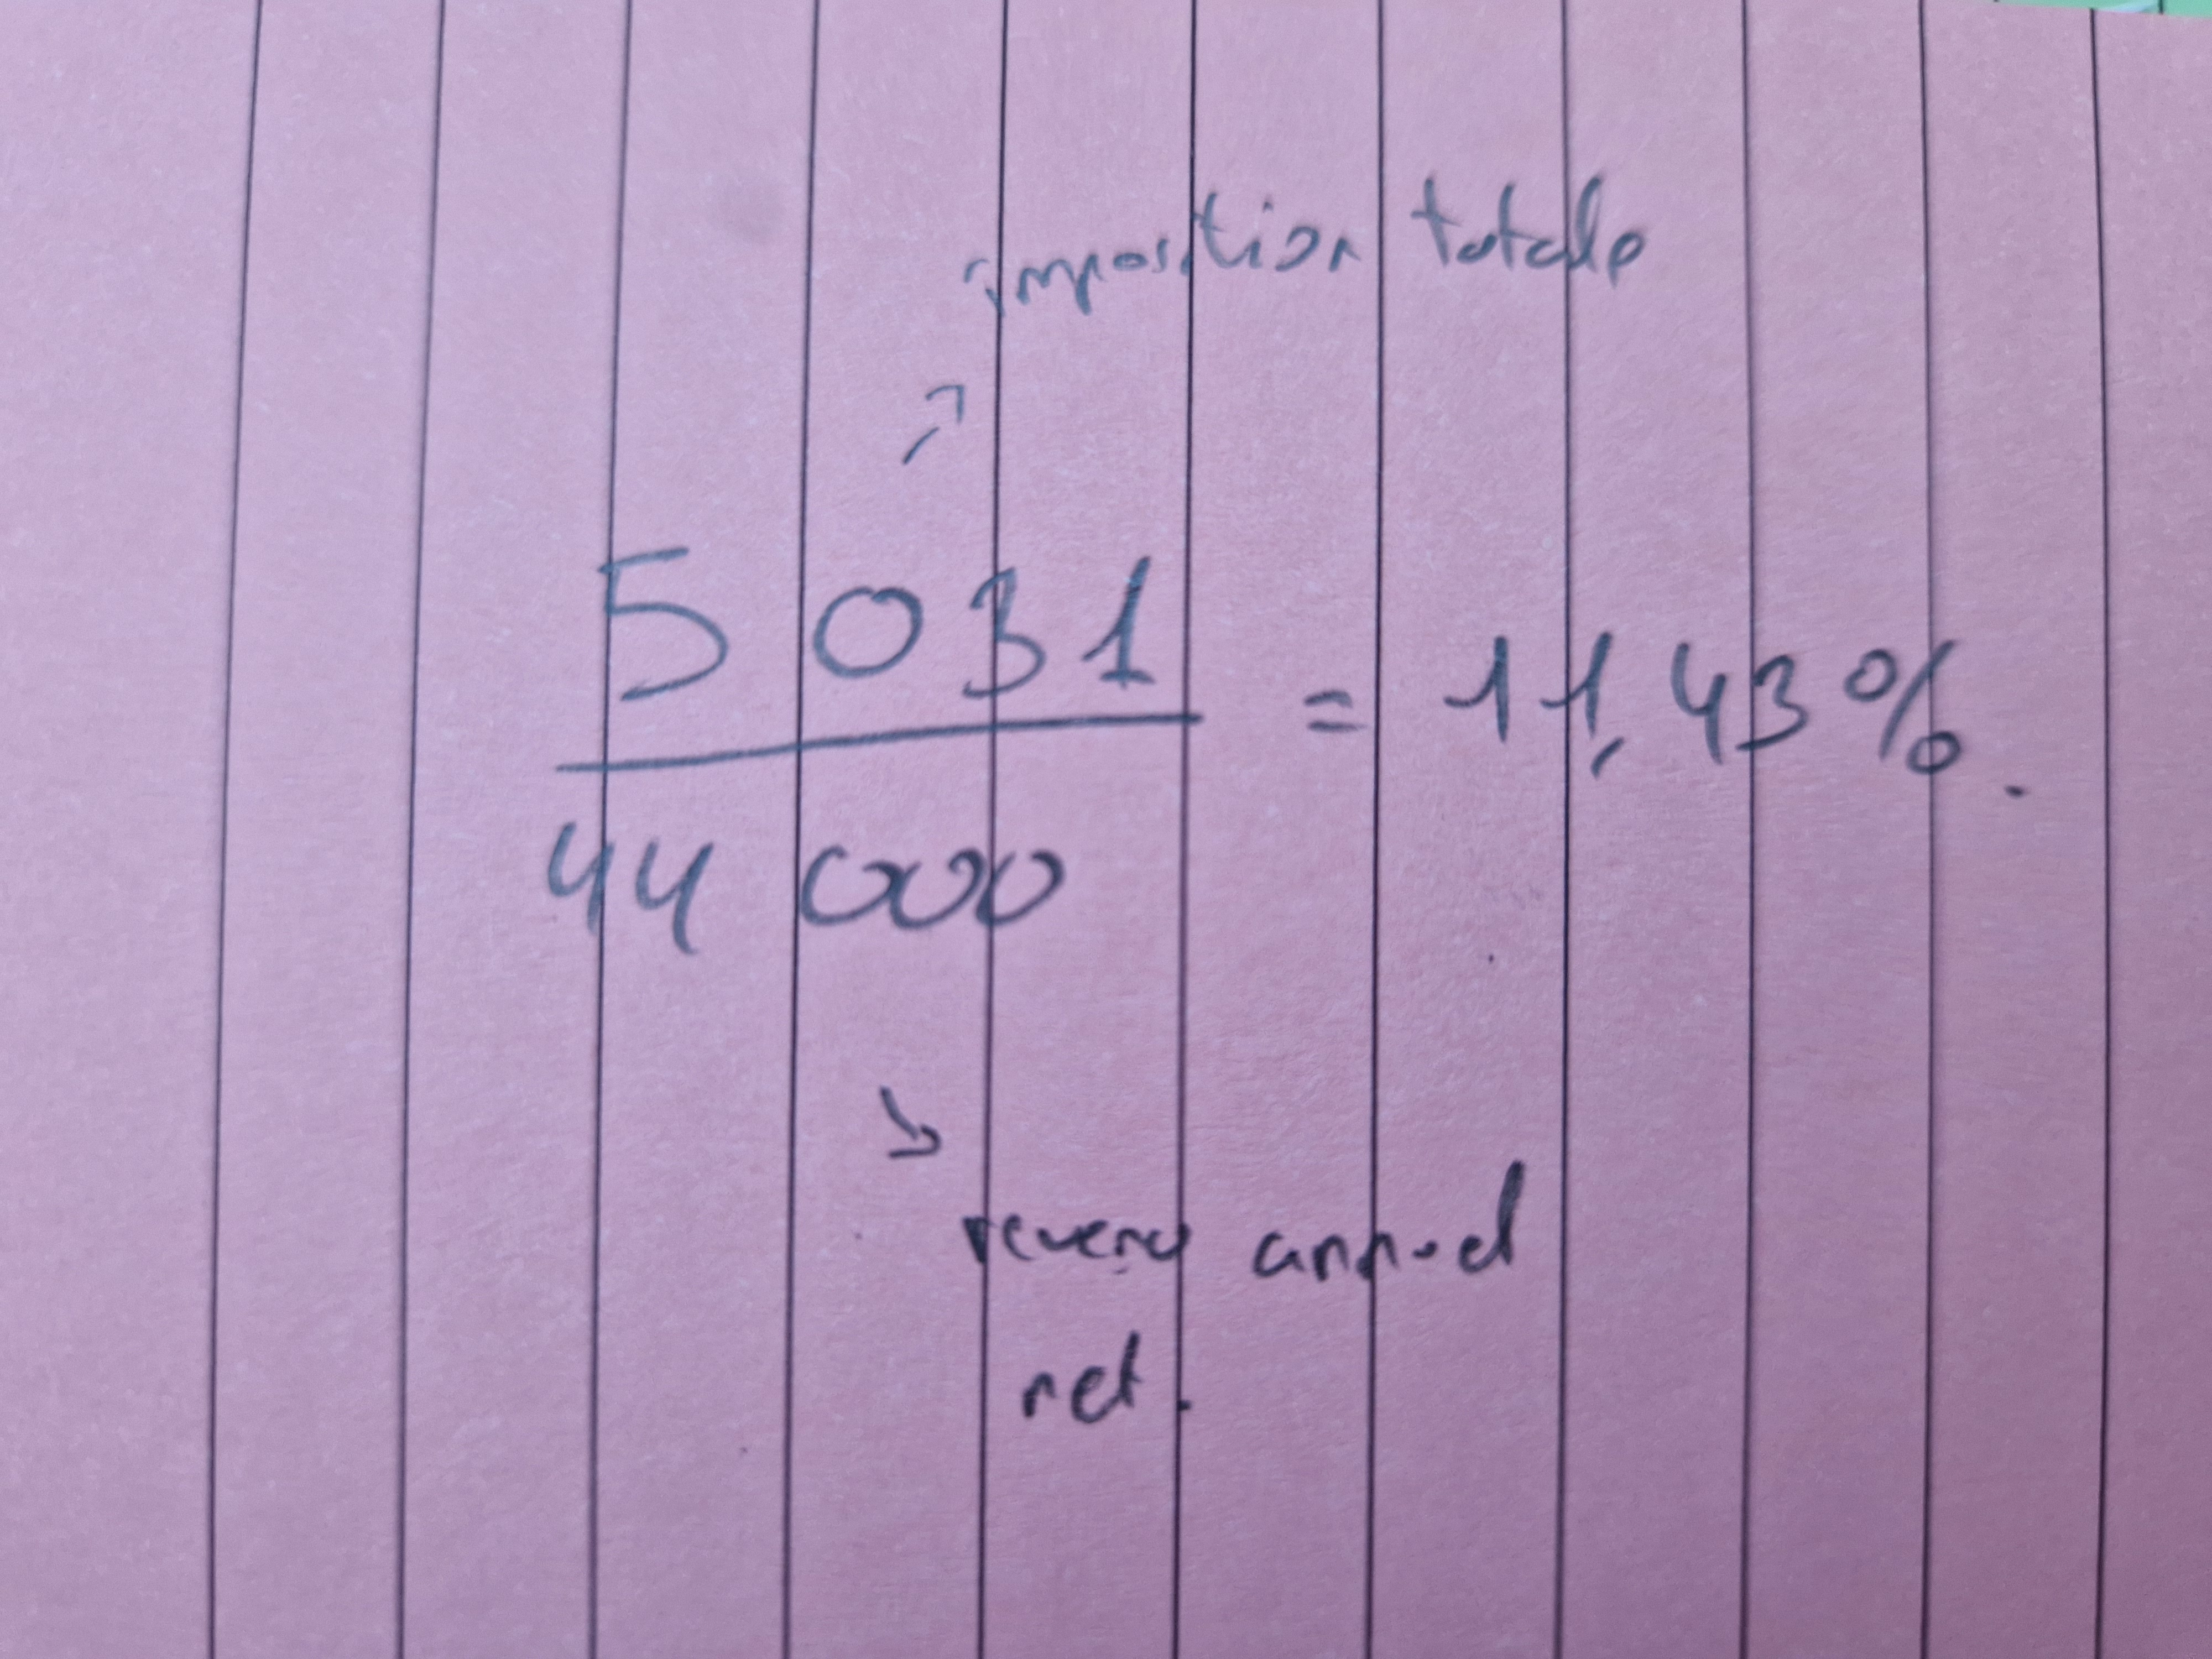 imposition totale
↗
5 031
= 11,43%.
44 000
↘
revenu annuel
net.